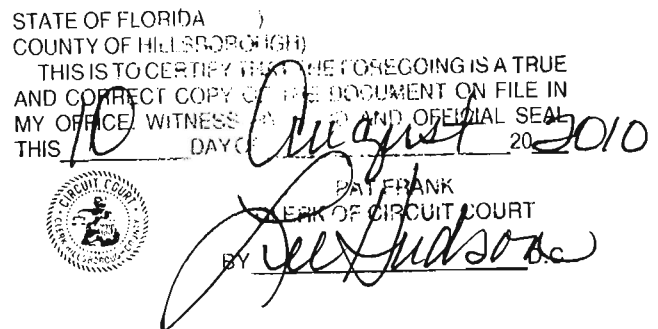 STATE OF FLORIDA )
COUNTY OF HILLSBOROUGH)
THIS IS TO CERTIFY THAT THE FOREGOING IS A TRUE
AND CORRECT COPY OF THE DOCUMENT ON FILE IN
MY OFFICE. WITNESS MY HAND AND OFFICIAL SEAL
THIS 10 DAY OF August 20 2010
CIRCUIT COURT
PAT FRANK
CLERK OF CIRCUIT COURT
BY Lee Hudson D.C.